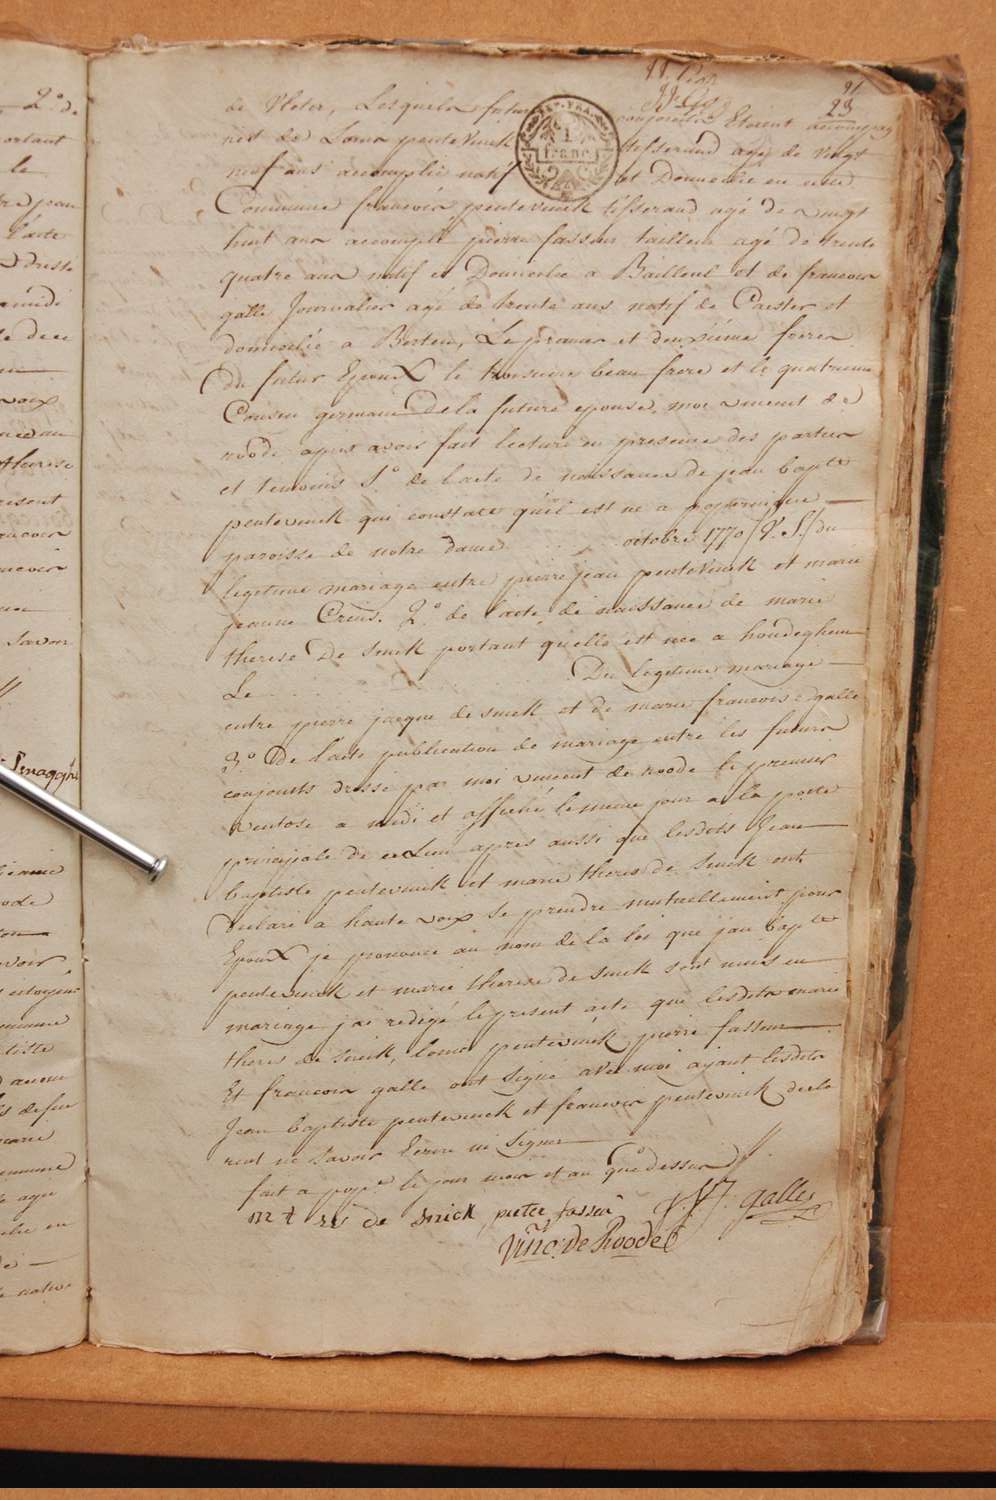 21
23
de Vleter, Lesquels futurs conjoints Etoient accompag
nés de Louis pentevinck tisserand agé de vingt
neuf ans accomplie natif et Domicilie en cette
Commune francois pentevinck tisserand agé de vingt
huit ans accomplie pierre fasseur tailleur agé de trente
quatre ans natif et Domicilie a Bailleul et de francois
galle Journalier agé de trente ans natif de Caester et
domicilié a Berten, Le premier et deuxsieme freres
du futur Epoux le troisieme beau frere et le quatrieme
Cousin germain de la future epouse, moi vincent de
roode apres avoir fait lecture en presence des parties
et temoins 1.° de l'acte de naissance de jean bapte
pentevinck qui constate qu'il est né a poperingue
paroisse de notre dame octobre 1770 (V. S.) du
legetime mariage entre pierre jean pentevinck et marie
jeanne Creus. 2.° de l'acte de naissance de marie
therese De Smick portant quelle est nee a hondeghem
Le Du legetime mariage
entre pierre jacque de smick et de marie francoise galle
3.° De l'acte publication de mariage entre les futurs
conjoints dressé par moi vincent de roode le premier
ventose a midi et affiché le meme jour a la porte
principale de ce Lieu apres aussi que lesdits Jean
baptiste pentevinck et marie theres de Smick ont
declaré a haute voix se prendre mutuellement pour
Epoux je prononce au nom de la loi que jean bapte
pentevinck et marie therese de smick sont unis en
mariage j'ai redigé le present acte que lesdits marie
theres de Smick, Louis pentevinck pierre fasseur
Et francois galle ont signé avec moi ayant lesdits
Jean baptiste pentevinck et francois pentevinck decla
rent ne savoir Ecrire ni signer
fait a pope. le jour mois et an que dessus
de Smick pieter fasseur galle
Vinc: de Roode
2.° de
portant
le
l'acte
voix
therese
present
savoir